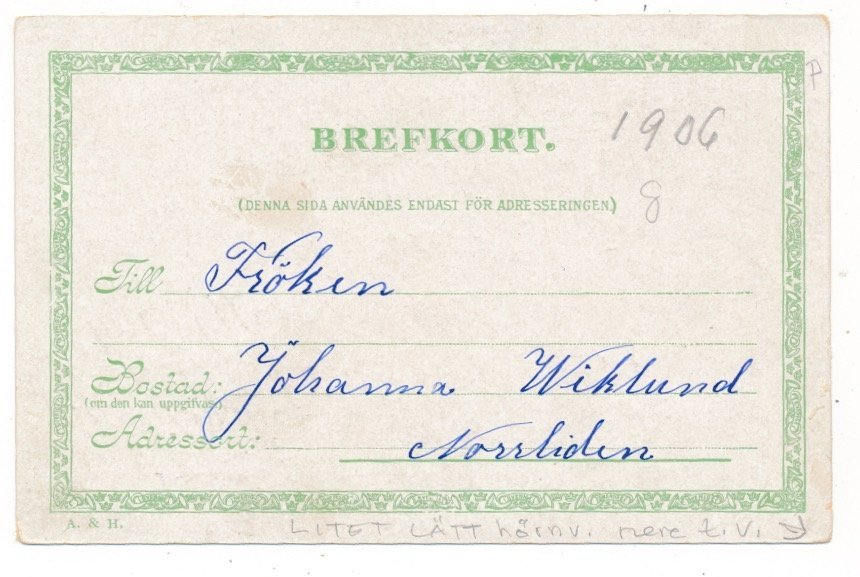 BREFKORT. 1906
(DENNA SIDA ANVÄNDES ENDAST FÖR ADRESSERINGEN) 8
Till Fröken
Bostad: Johanna Wiklund
(om den kan uppgifvas).
Adressort: Norrliden
A. & H. LITET LÄTT hörnv. nere t.v.